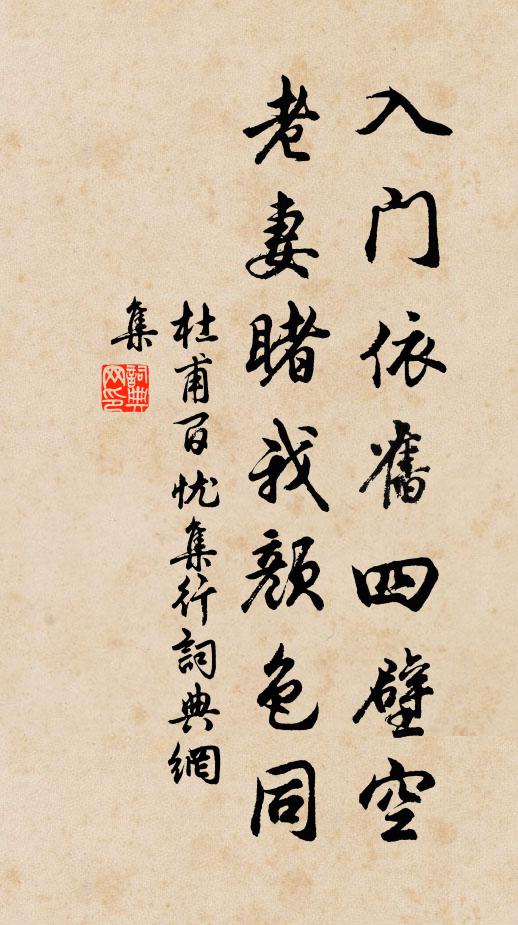 入門依舊四壁空
老妻睹我顏色同
杜甫百忧集行詞典網
集
詞典
网印